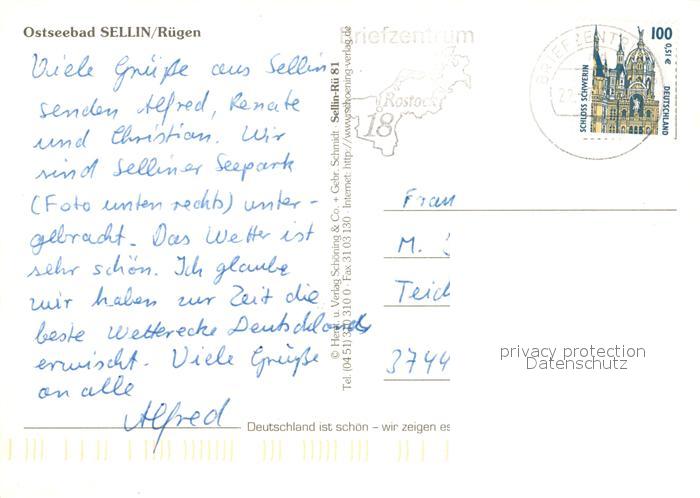 Ostseebad SELLIN/Rügen
Viele Grüße aus Sellin
senden Alfred, Renate
und Christian. Wir
sind Selliner Seepark
(Foto unten rechts) unter-
gebracht. Das Wetter ist
sehr schön. Ich glaube
wir haben zur Zeit die
beste Wetterecke Deutschlands
erwischt. Viele Grüße
an alle
Alfred
Deutschland ist schön – wir zeigen es
© Herst. u. Verlag Schöning & Co. + Gebr. Schmidt · Sellin-Rü 81
Tel. (04 51) 3 10 310 0 · Fax 31 03 130 · Internet: http://www.schoening-verlag.de
Briefzentrum
Rostock
18
BRIEFZENTR
100
0,51 €
SCHLOSS SCHWERIN
DEUTSCHLAND
Frau
M.
Teich
3744
privacy protection
Datenschutz